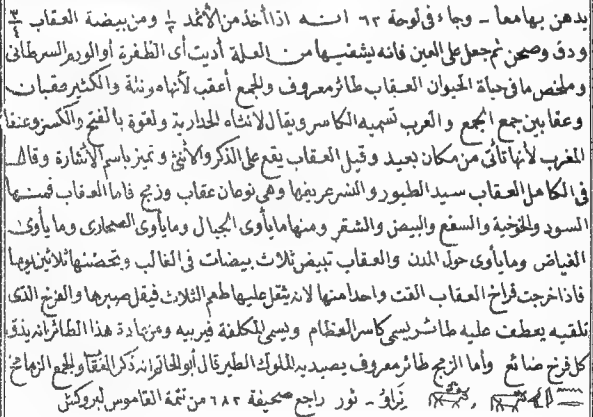 يدهن بها معا – وجاء فى لوحة ٦٢ انه اذا أخذ من الأثمد ١/٢ ومن بيضة العقاب ٣/٤
ودق وصحن ثم جعل على العين فانه يشفيها من العلة أديت أى الظفرة أو الورم السرطانى
وملخص ما فى حياة الحيوان العقاب طائر معروف والجمع أعقب لأنها مؤنثة والكثير عقبان
وعقابين جمع الجمع والعرب تسميه الكاسر ويقال لانثاه الخدارية ولقوة بالفتح والكسر وعنقا
المغرب لأنها تأتى من مكان بعيد وقيل العقاب يقع على الذكر والأنثى وتميز باسم الاشارة وقال
فى الكامل العقاب سيد الطيور والنسر عريفها وهى نوعان عقاب وزمج فاما العقاب فمنها
السود والخوخية والسفع والبيض والشقر ومنها ما يأوى الجبال وما يأوى الصحارى وما يأوى
الغياض وما يأوى حول المدن والعقاب تبيض ثلاث بيضات فى الغالب وتحضنها ثلاثين يوما
فاذا خرجت فراخ العقاب القت واحدا منها لانه يثقل عليها طعم الثلاث فيقل صبرها والفرخ الذى
تلقيه يعطف عليه طائر يسمى كاسر العظام ويسمى المكلفة فيربيه ومن عادة هذا الطائر انه يزق
كل فرخ ضائع وأما الزمج طائر معروف يصيد به الملوك الطير قال أبو حاتم انه ذكر العقاب والجمع الزمامج
ثور راجع صحيفة ٦٨٢ من تتمة القاموس لبروكش